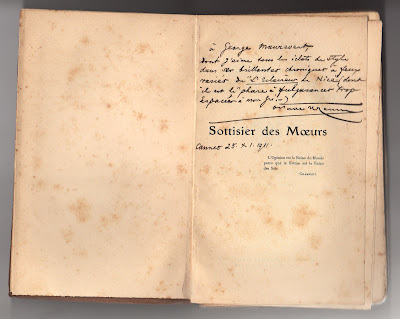 à Georges Maurevert
dont j'aime tous les éclats du style
dans ses brillantes chroniques à feux
variés de "L'Eclaireur de Nice", dont
il est le phare à fulgurances trop
espacées à mon gré
Octave Uzanne
Sottisier des Mœurs
Cannes 28. X I. 1911.
L'Opinion est la Reine du Monde
parce que la Sottise est la Reine
des Sots
Chamfort